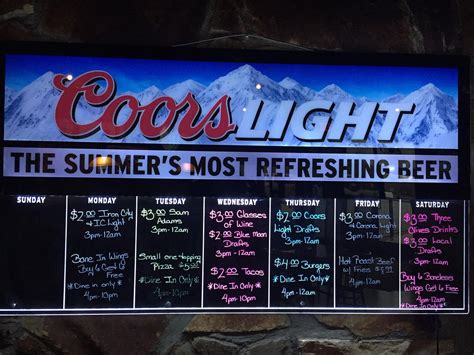 Coors LIGHT
THE SUMMER'S MOST REFRESHING BEER
SUNDAY
MONDAY
$2.00 Iron City
& IC Light
3pm-12am
Bone In Wings
Buy 6 Get 6
Free
*Dine in only*
4pm-10pm
TUESDAY
$3.00 Sam
Adams
3pm-12am
Small one-topping
Pizza
*Dine In Only*
4pm-10pm
WEDNESDAY
$3.00 Glasses
of Wine
$2.00 Blue Moon
Drafts
3pm-12am
$2.00 Tacos
*Dine In Only*
4pm-10pm
THURSDAY
$2.00 Coors
Light Drafts
3pm-12am
$4.00 Burgers
*Dine In Only*
4pm-10pm
FRIDAY
$3.00 Corona
& Corona
Light
3pm-12am
Hot Roast Beef
w/ Fries
SATURDAY
$3.00 Three
Olives Drinks
$3.00 Local
Drafts
3pm-12am
Buy 6 Boneless
Wings Get 6 Free
4pm-12am
*Dine In Only*